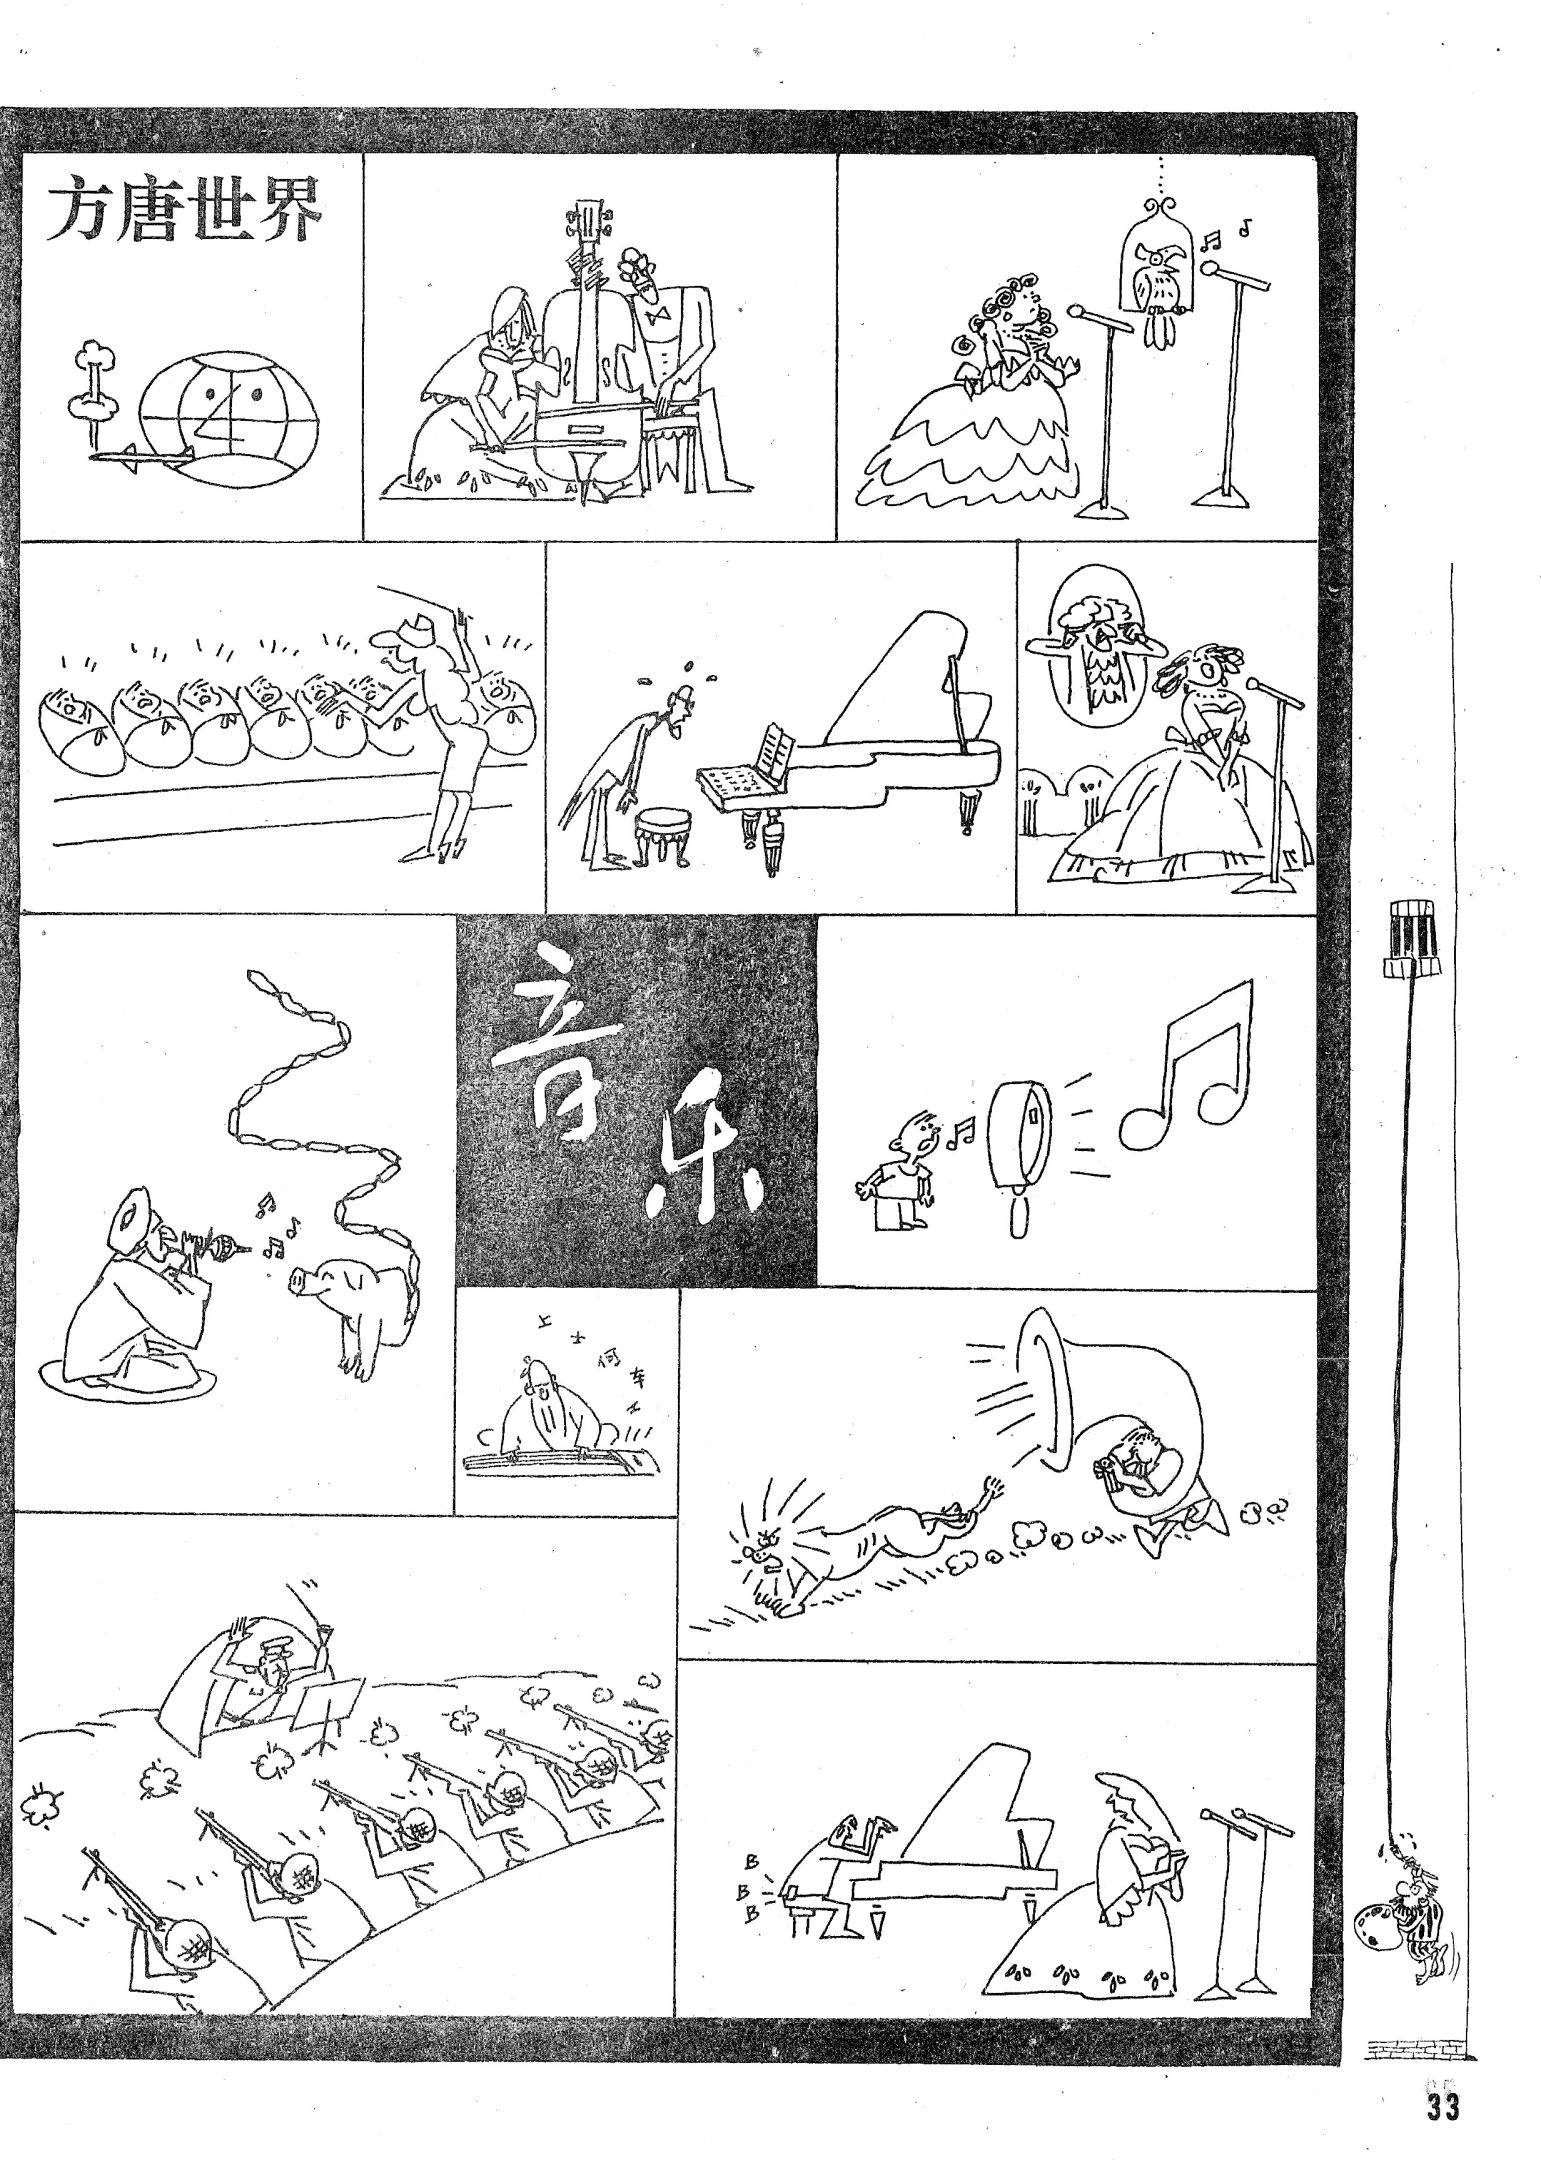 方唐世界
音乐
上
士
何
车
B
B
B
33